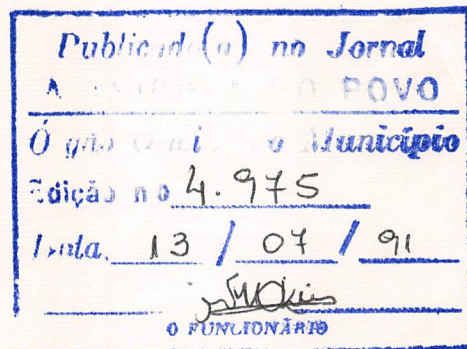 Publicado(a) no Jornal
A O POVO
Órgão Oficial do Município
Edição no 4.975
Data. 13 / 07 / 91
O FUNCIONÁRIO